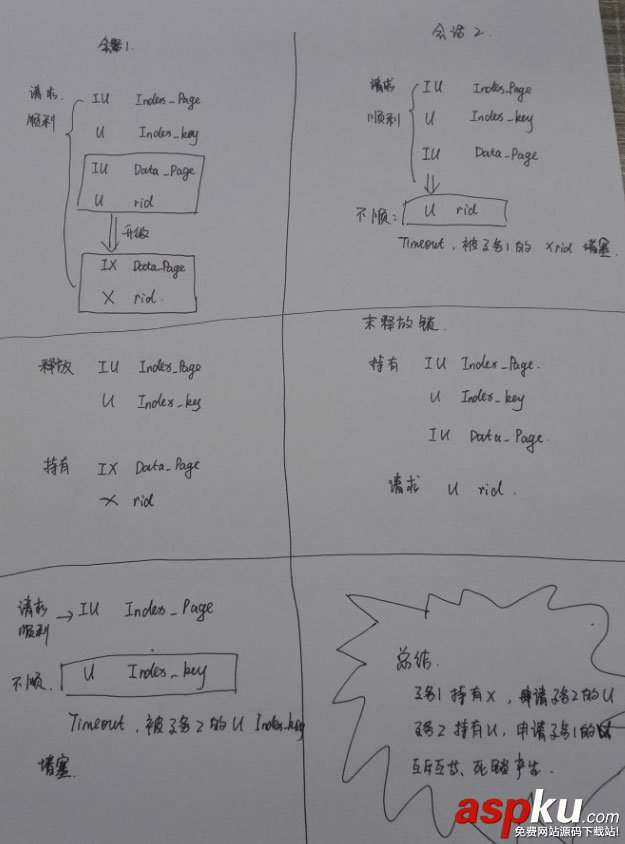 会话1.
请求
顺利
IU Index_Page
U Index_key
IU Data_Page
U rid
升级
IX Data_Page
X rid.
会话2.
请求
顺利
IU Index_Page
U Index_key
IU Data_Page
不顺: U rid
Timeout, 被事务1的 X rid 堵塞.
释放 IU Index_Page
U Index_key
持有 IX Data_Page
X rid
未释放锁.
持有 IU Index_Page.
U Index_key
IU Data_Page.
请求 U rid.
请求
顺利 → IU Index_Page
不顺. U Index_key
Timeout, 被事务2的 U Index_key
堵塞.
总结.
事务1持有X, 申请事务2的U
事务2持有U, 申请事务1的
死锁产生.
aspku.com
免费网站源码下载站!